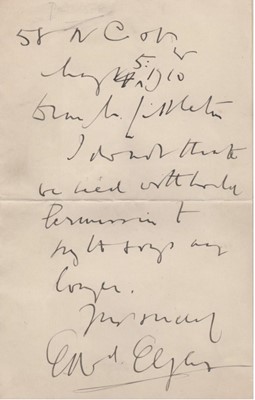 58 N C St W
May 5: 1910
Dear Mr Littleton
I do not think
we need withhold
permission to
any longer.
Yrs sincly
Edw. Elgar